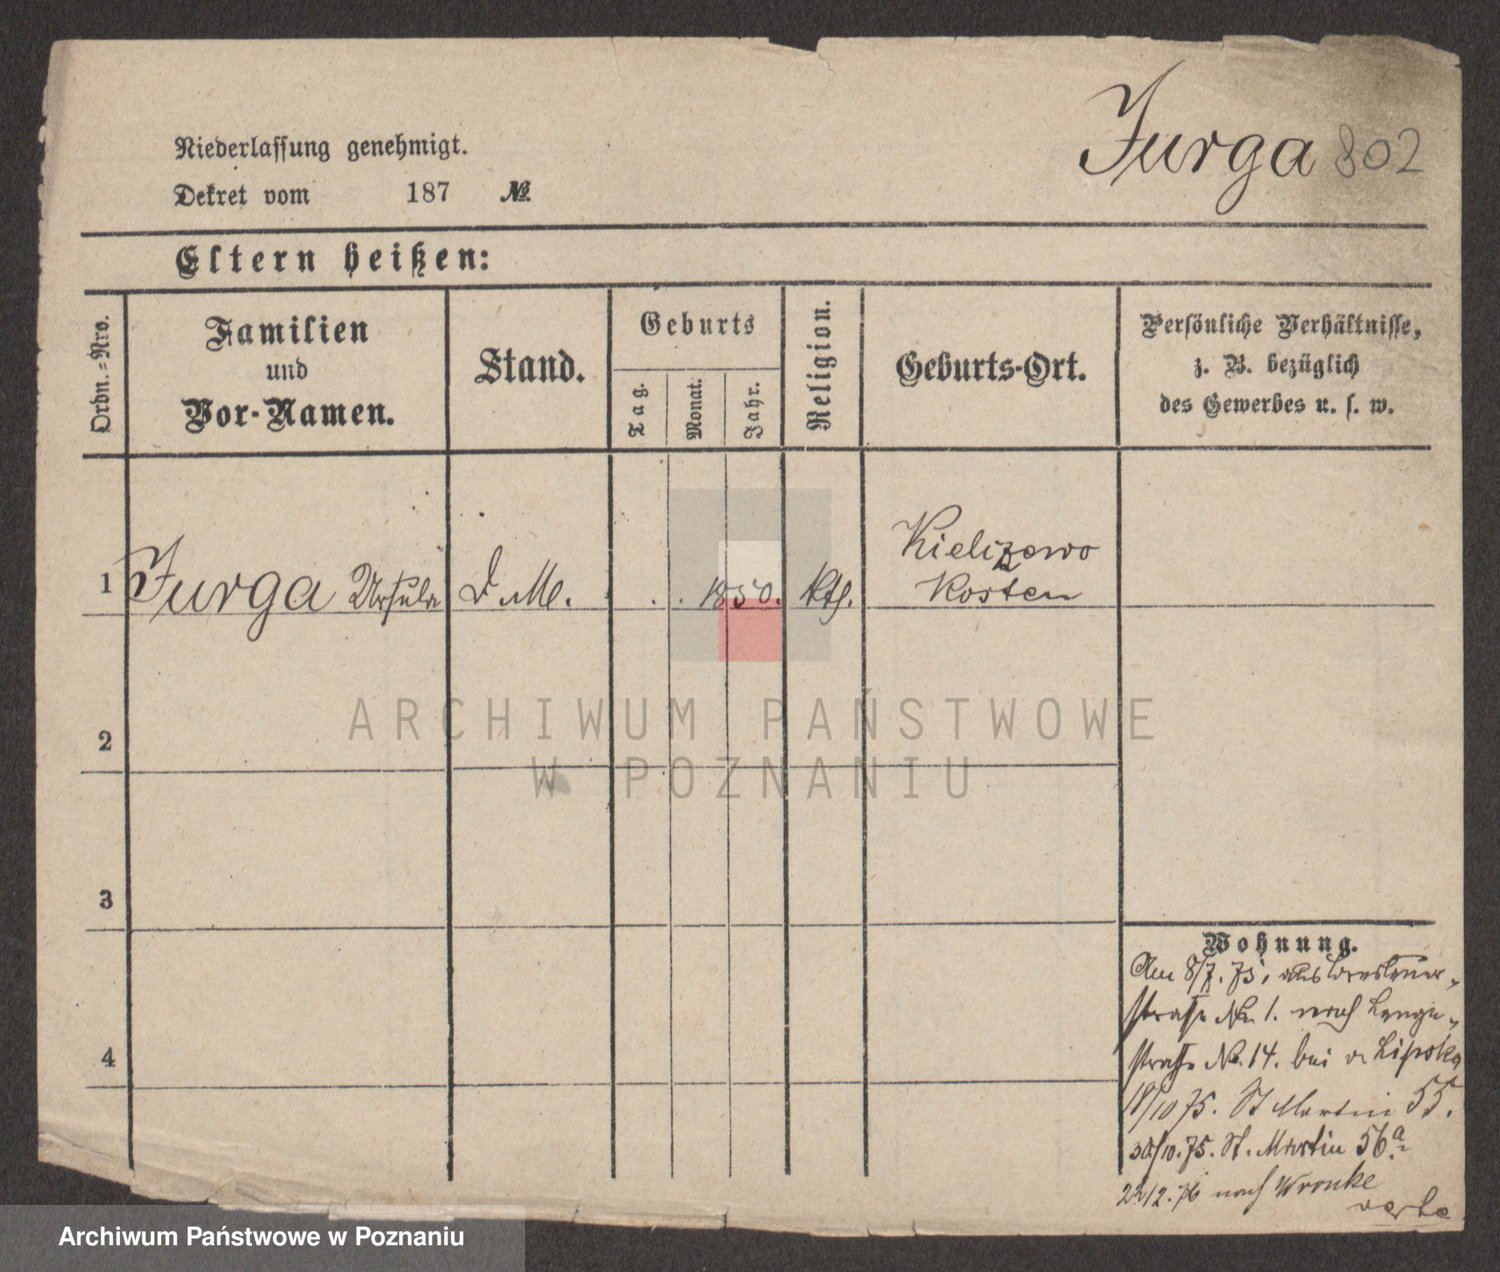 Jurga 802
Niederlassung genehmigt.
Dekret vom 187 №
Eltern heißen:
Ordn.=Nro.
Familien
und
Vor-Namen.
Stand.
Geburts
Tag.
Monat.
Jahr.
Religion.
Geburts-Ort.
Persönliche Verhältnisse,
z. B. bezüglich
des Gewerbes u. s. w.
1 Jurga Ursula D. M. 1850. kth. Kielizewo
Kosten
2
3
4
Wohnung.
Am 8/7. 75, aus
straße No 1. nach Lange-
straße No. 14. bei Lipska
18/10 75. St Martin 55.
30/10. 75. St. Martin 56a.
nach Wronke
verte
ARCHIWUM PAŃSTWOWE
W POZNANIU
Archiwum Państwowe w Poznaniu